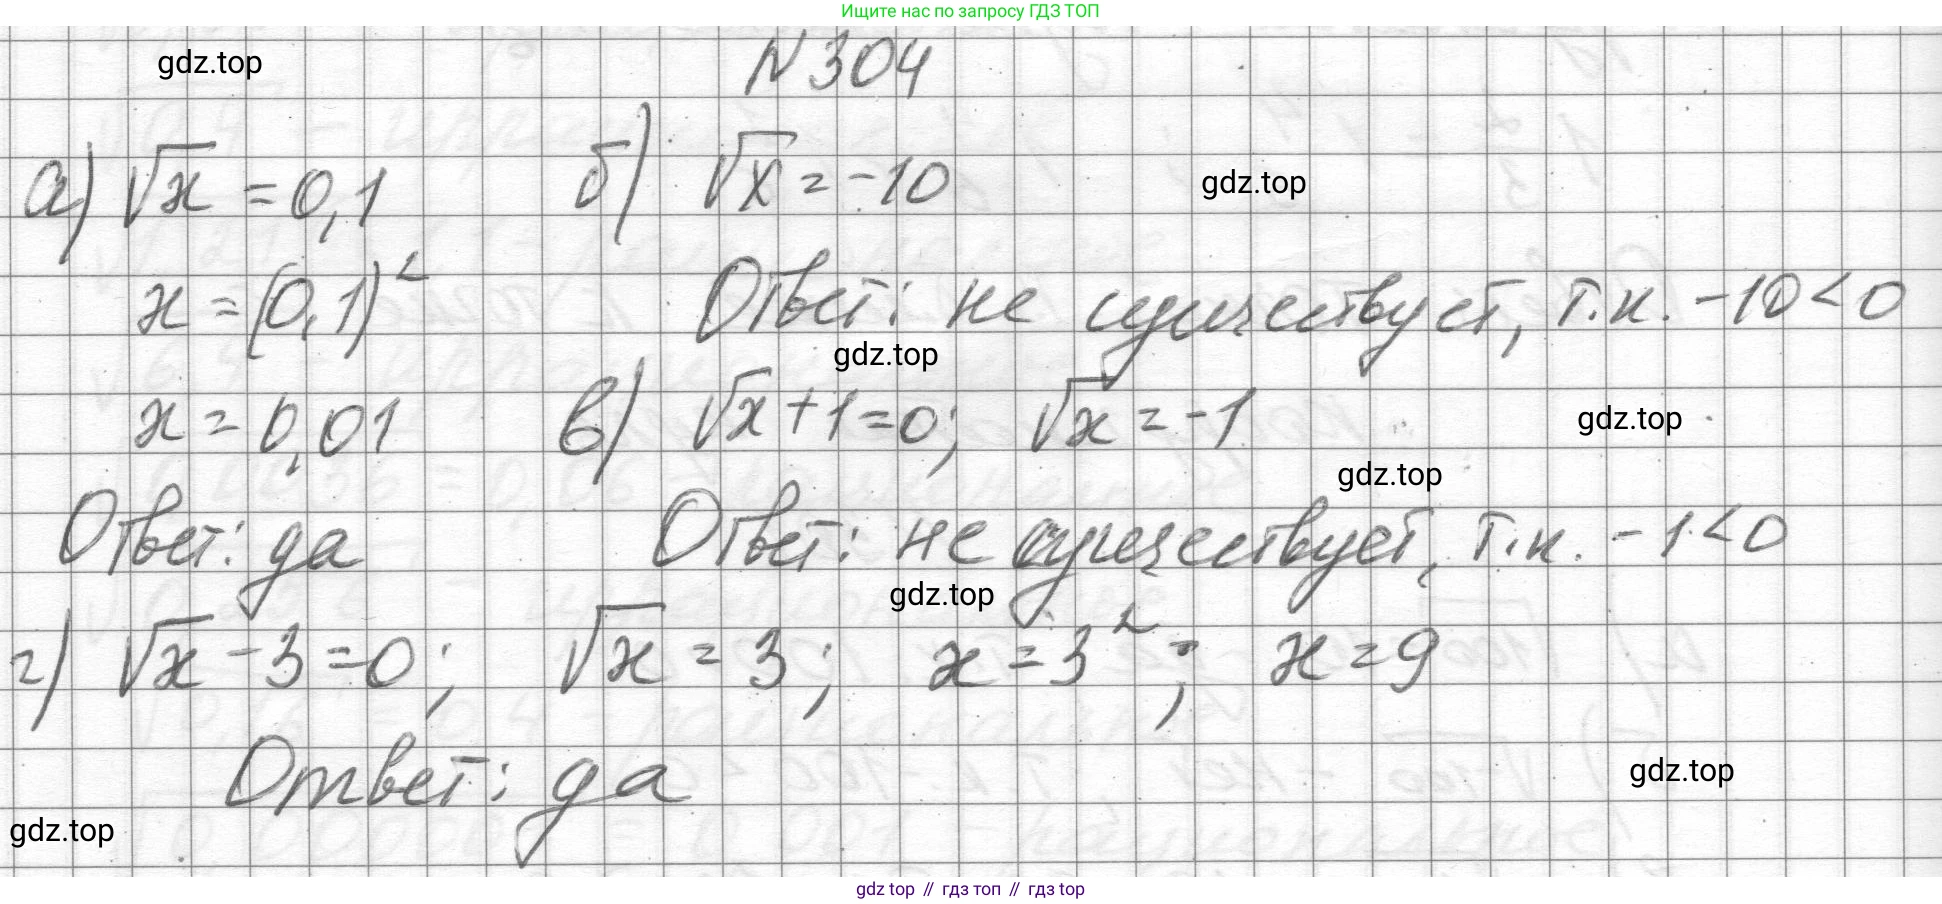 Ищите нас по запросу ГДЗ ТОП
gdz.top
N 304
а) √x = 0,1
б) √x = -10
gdz.top
x = (0,1)²
Ответ: не существует, т.к. -10 < 0
gdz.top
x = 0,01
в) √x + 1 = 0; √x = -1
gdz.top
gdz.top
Ответ: да
Ответ: не существует, т.к. -1 < 0
gdz.top
г) √x - 3 = 0; √x = 3; x = 3²; x = 9
Ответ: да
gdz.top
gdz.top
gdz top // гдз топ // гдз top